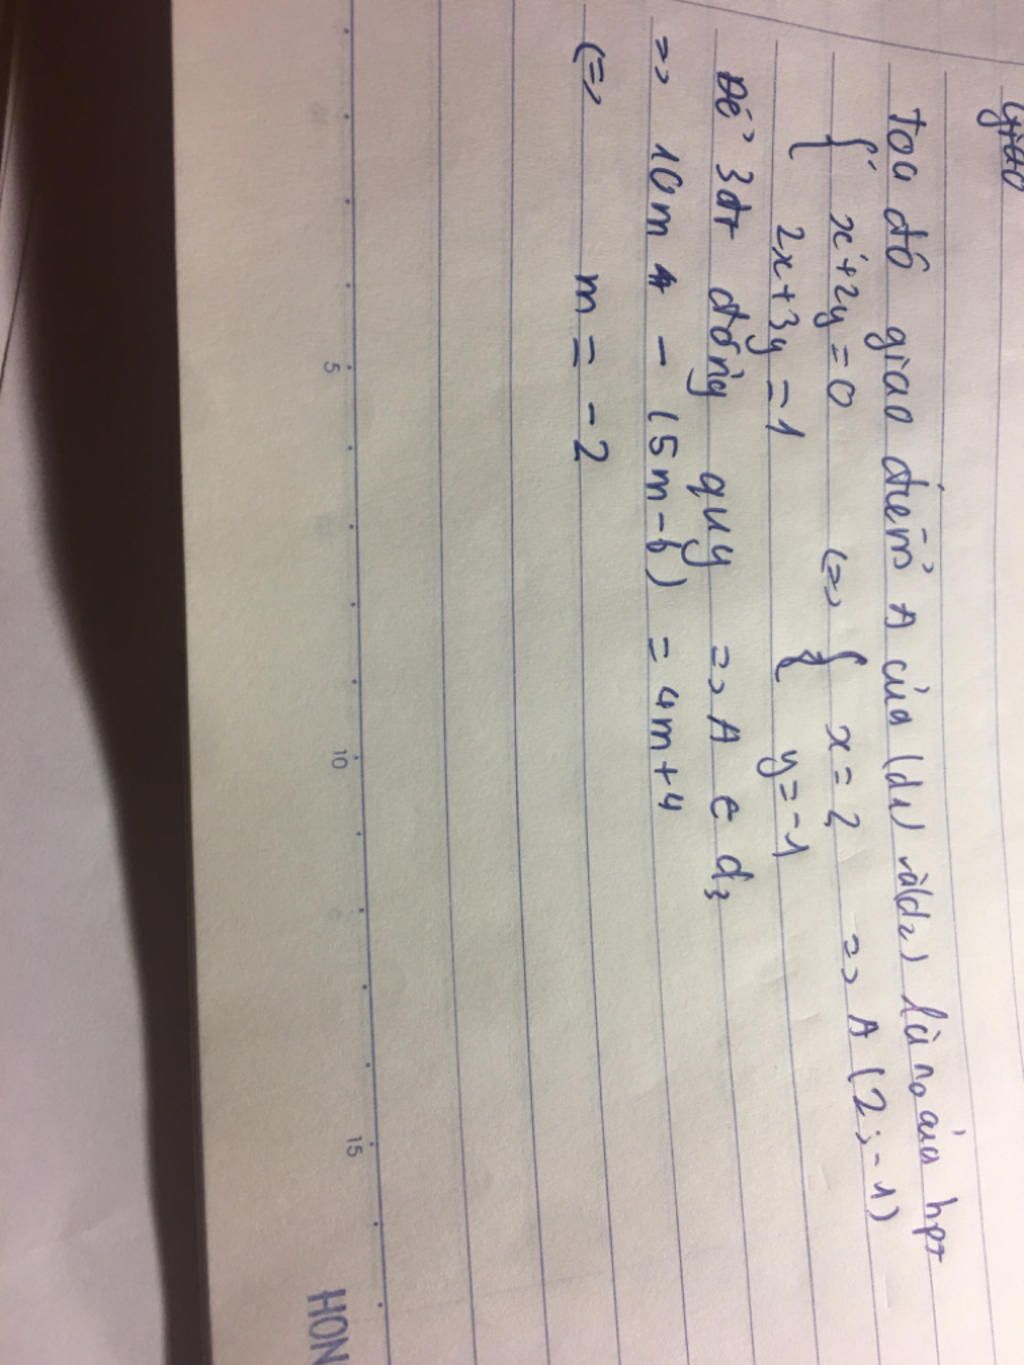 giao
Toa độ giao điểm A của (d1) và (d2) là no của hpt
{ x+2y=0
2x+3y=1 (=> { x=2
y=-1 => A (2;-1)
Để 3dt đồng quy => A e d3
=> 10m - (5m-6) = 4m+4
(=> m = -2
5 10 15
HON